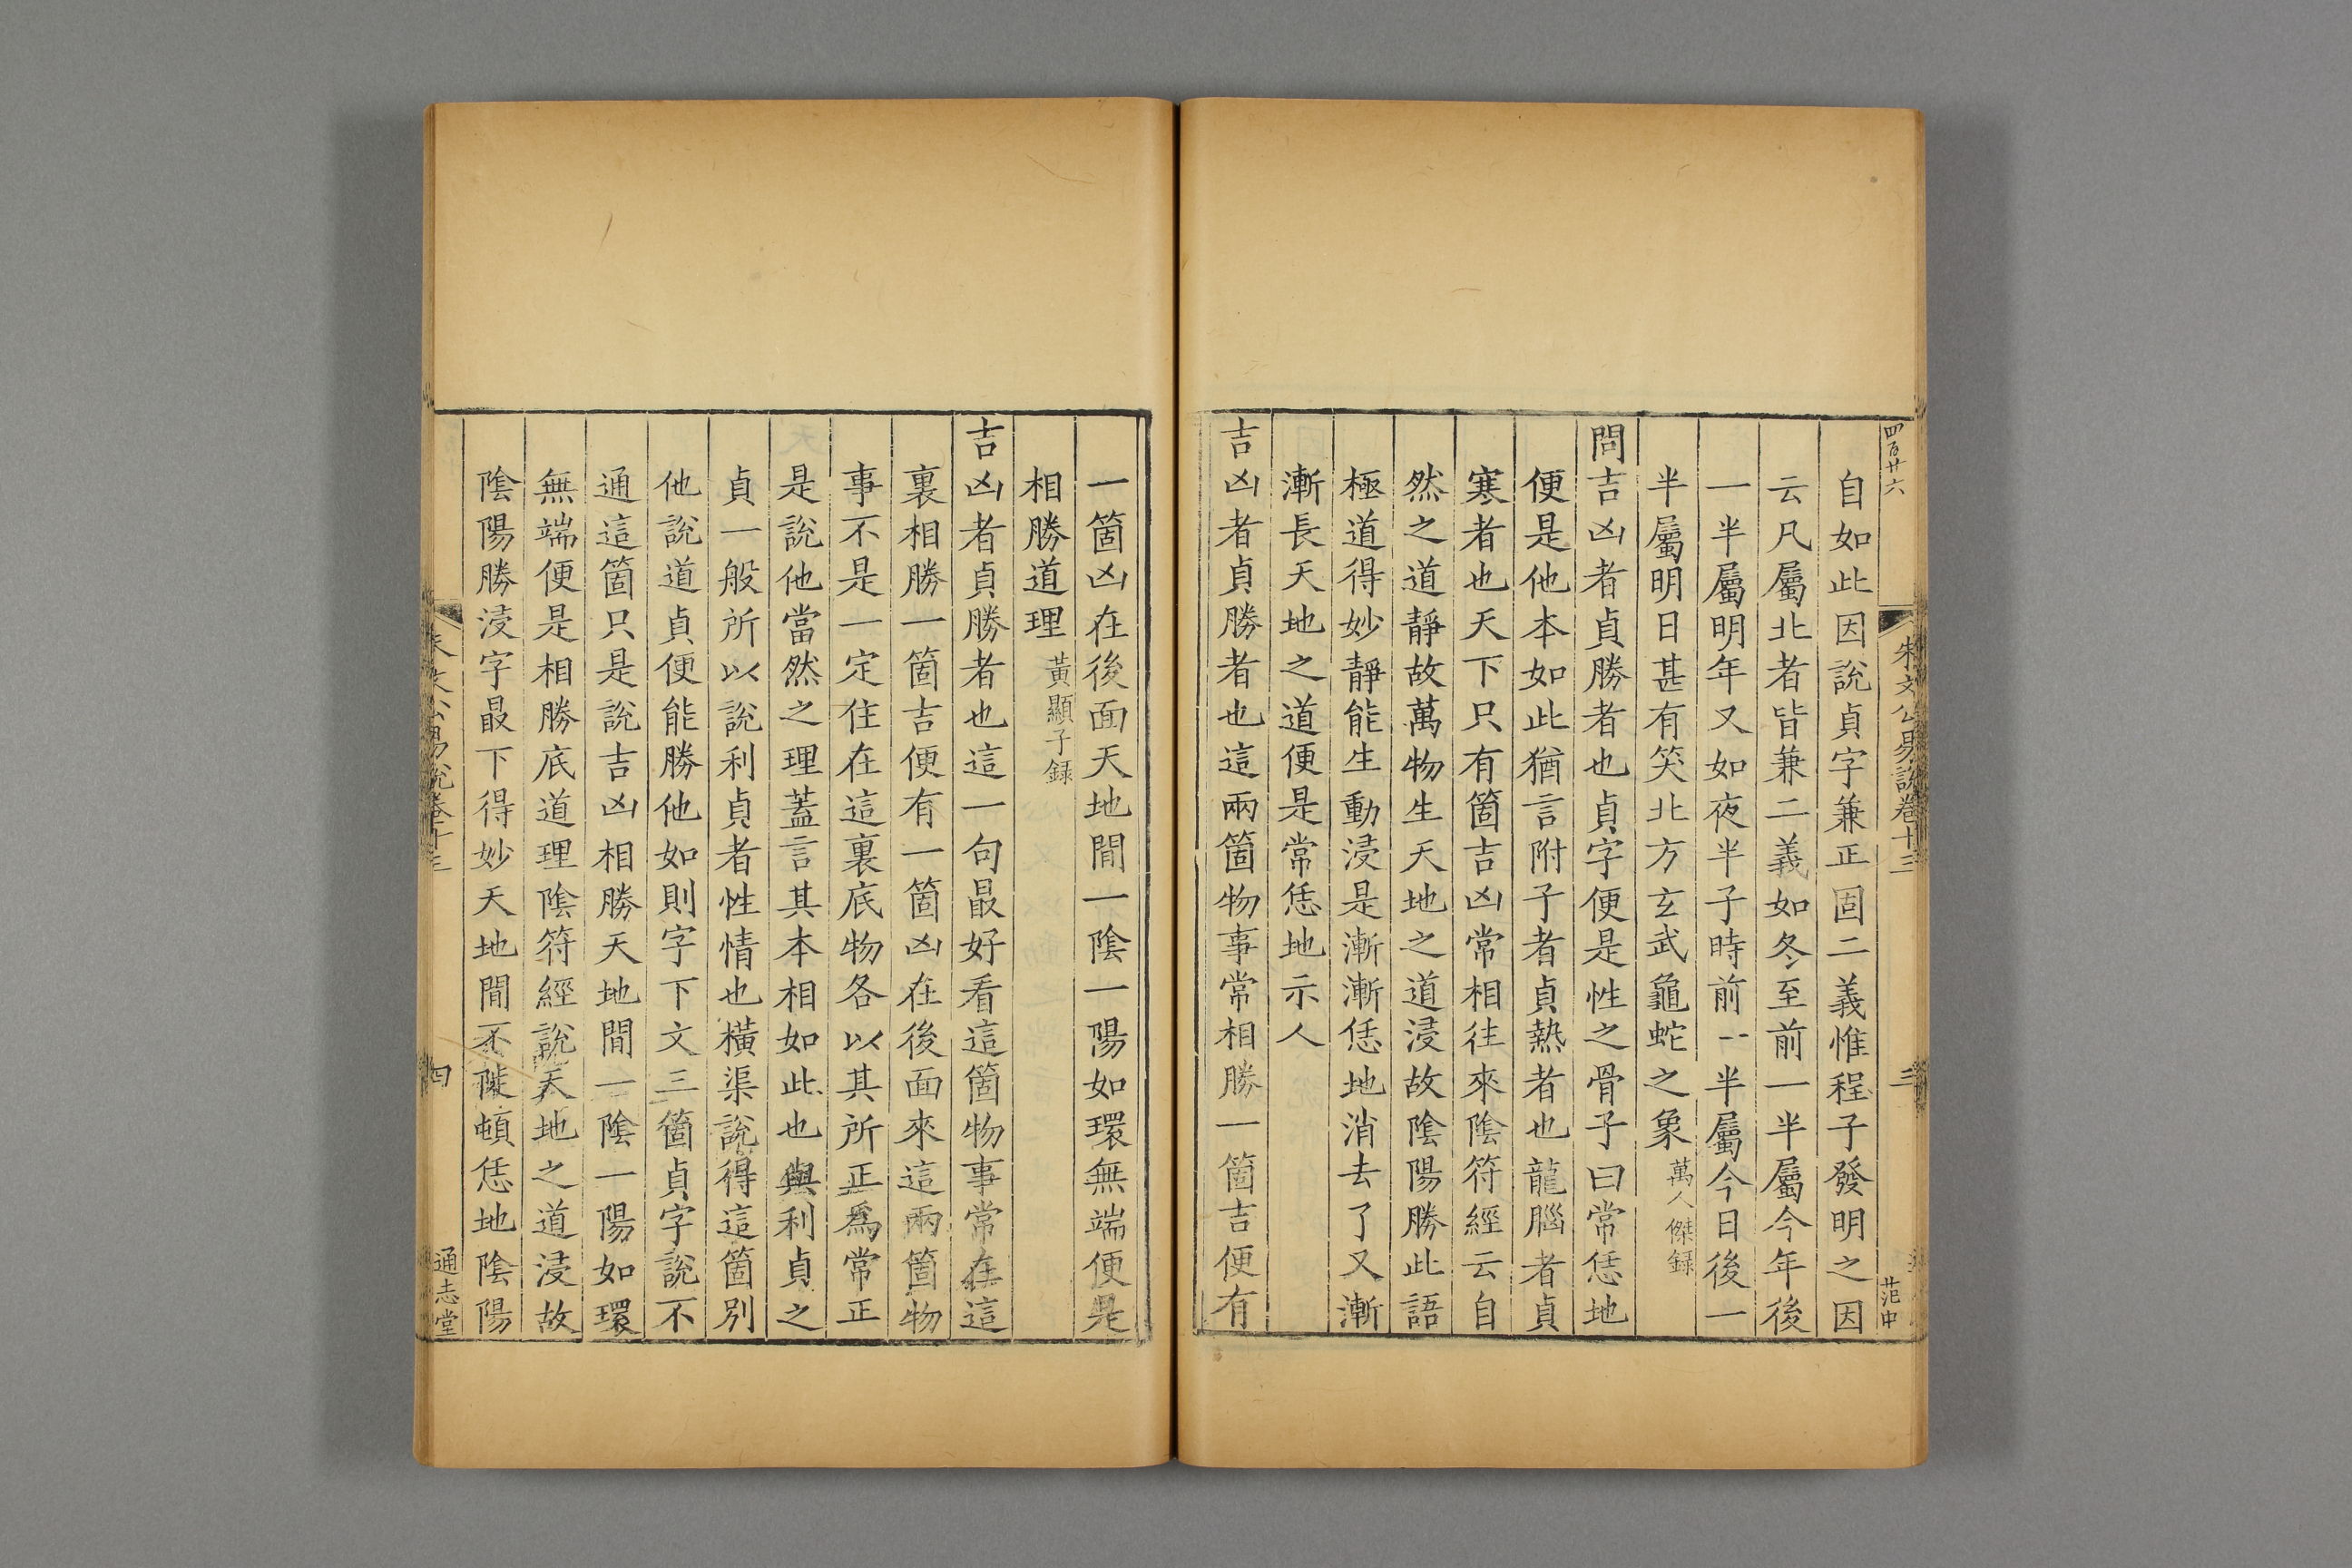 四百廿六
朱文公易說卷十三
三
范中
自如此因說貞字兼正固二義惟程子發明之因
云凡屬北者皆兼二義如冬至前一半屬今年後
一半屬明年又如夜半子時前一半屬今日後一
半屬明日甚有笑北方玄武龜蛇之象萬人傑録
問吉凶者貞勝者也貞字便是性之骨子曰常恁地
便是他本如此猶言附子者貞熱者也龍腦者貞
寒者也天下只有箇吉凶常相往來陰符經云自
然之道靜故萬物生天地之道浸故陰陽勝此語
極道得妙靜能生動浸是漸漸恁地消去了又漸
漸長天地之道便是常恁地示人
吉凶者貞勝者也這兩箇物事常相勝一箇吉便有
一箇凶在後面天地間一陰一陽如環無端便是
相勝道理黃顯子録
吉凶者貞勝者也這一句最好看這箇物事常在這
裏相勝一箇吉便有一箇凶在後面來這兩箇物
事不是一定住在這裏底物各以其所正爲常正
是說他當然之理蓋言其本相如此也與利貞之
貞一般所以說利貞者性情也橫渠說得這箇別
他說道貞便能勝他如則字下文三箇貞字說不
通這箇只是說吉凶相勝天地間一陰一陽如環
無端便是相勝底道理陰符經說天地之道浸故
陰陽勝浸字最下得妙天地間不陡頓恁地陰陽
朱文公易說卷十三
四
通志堂